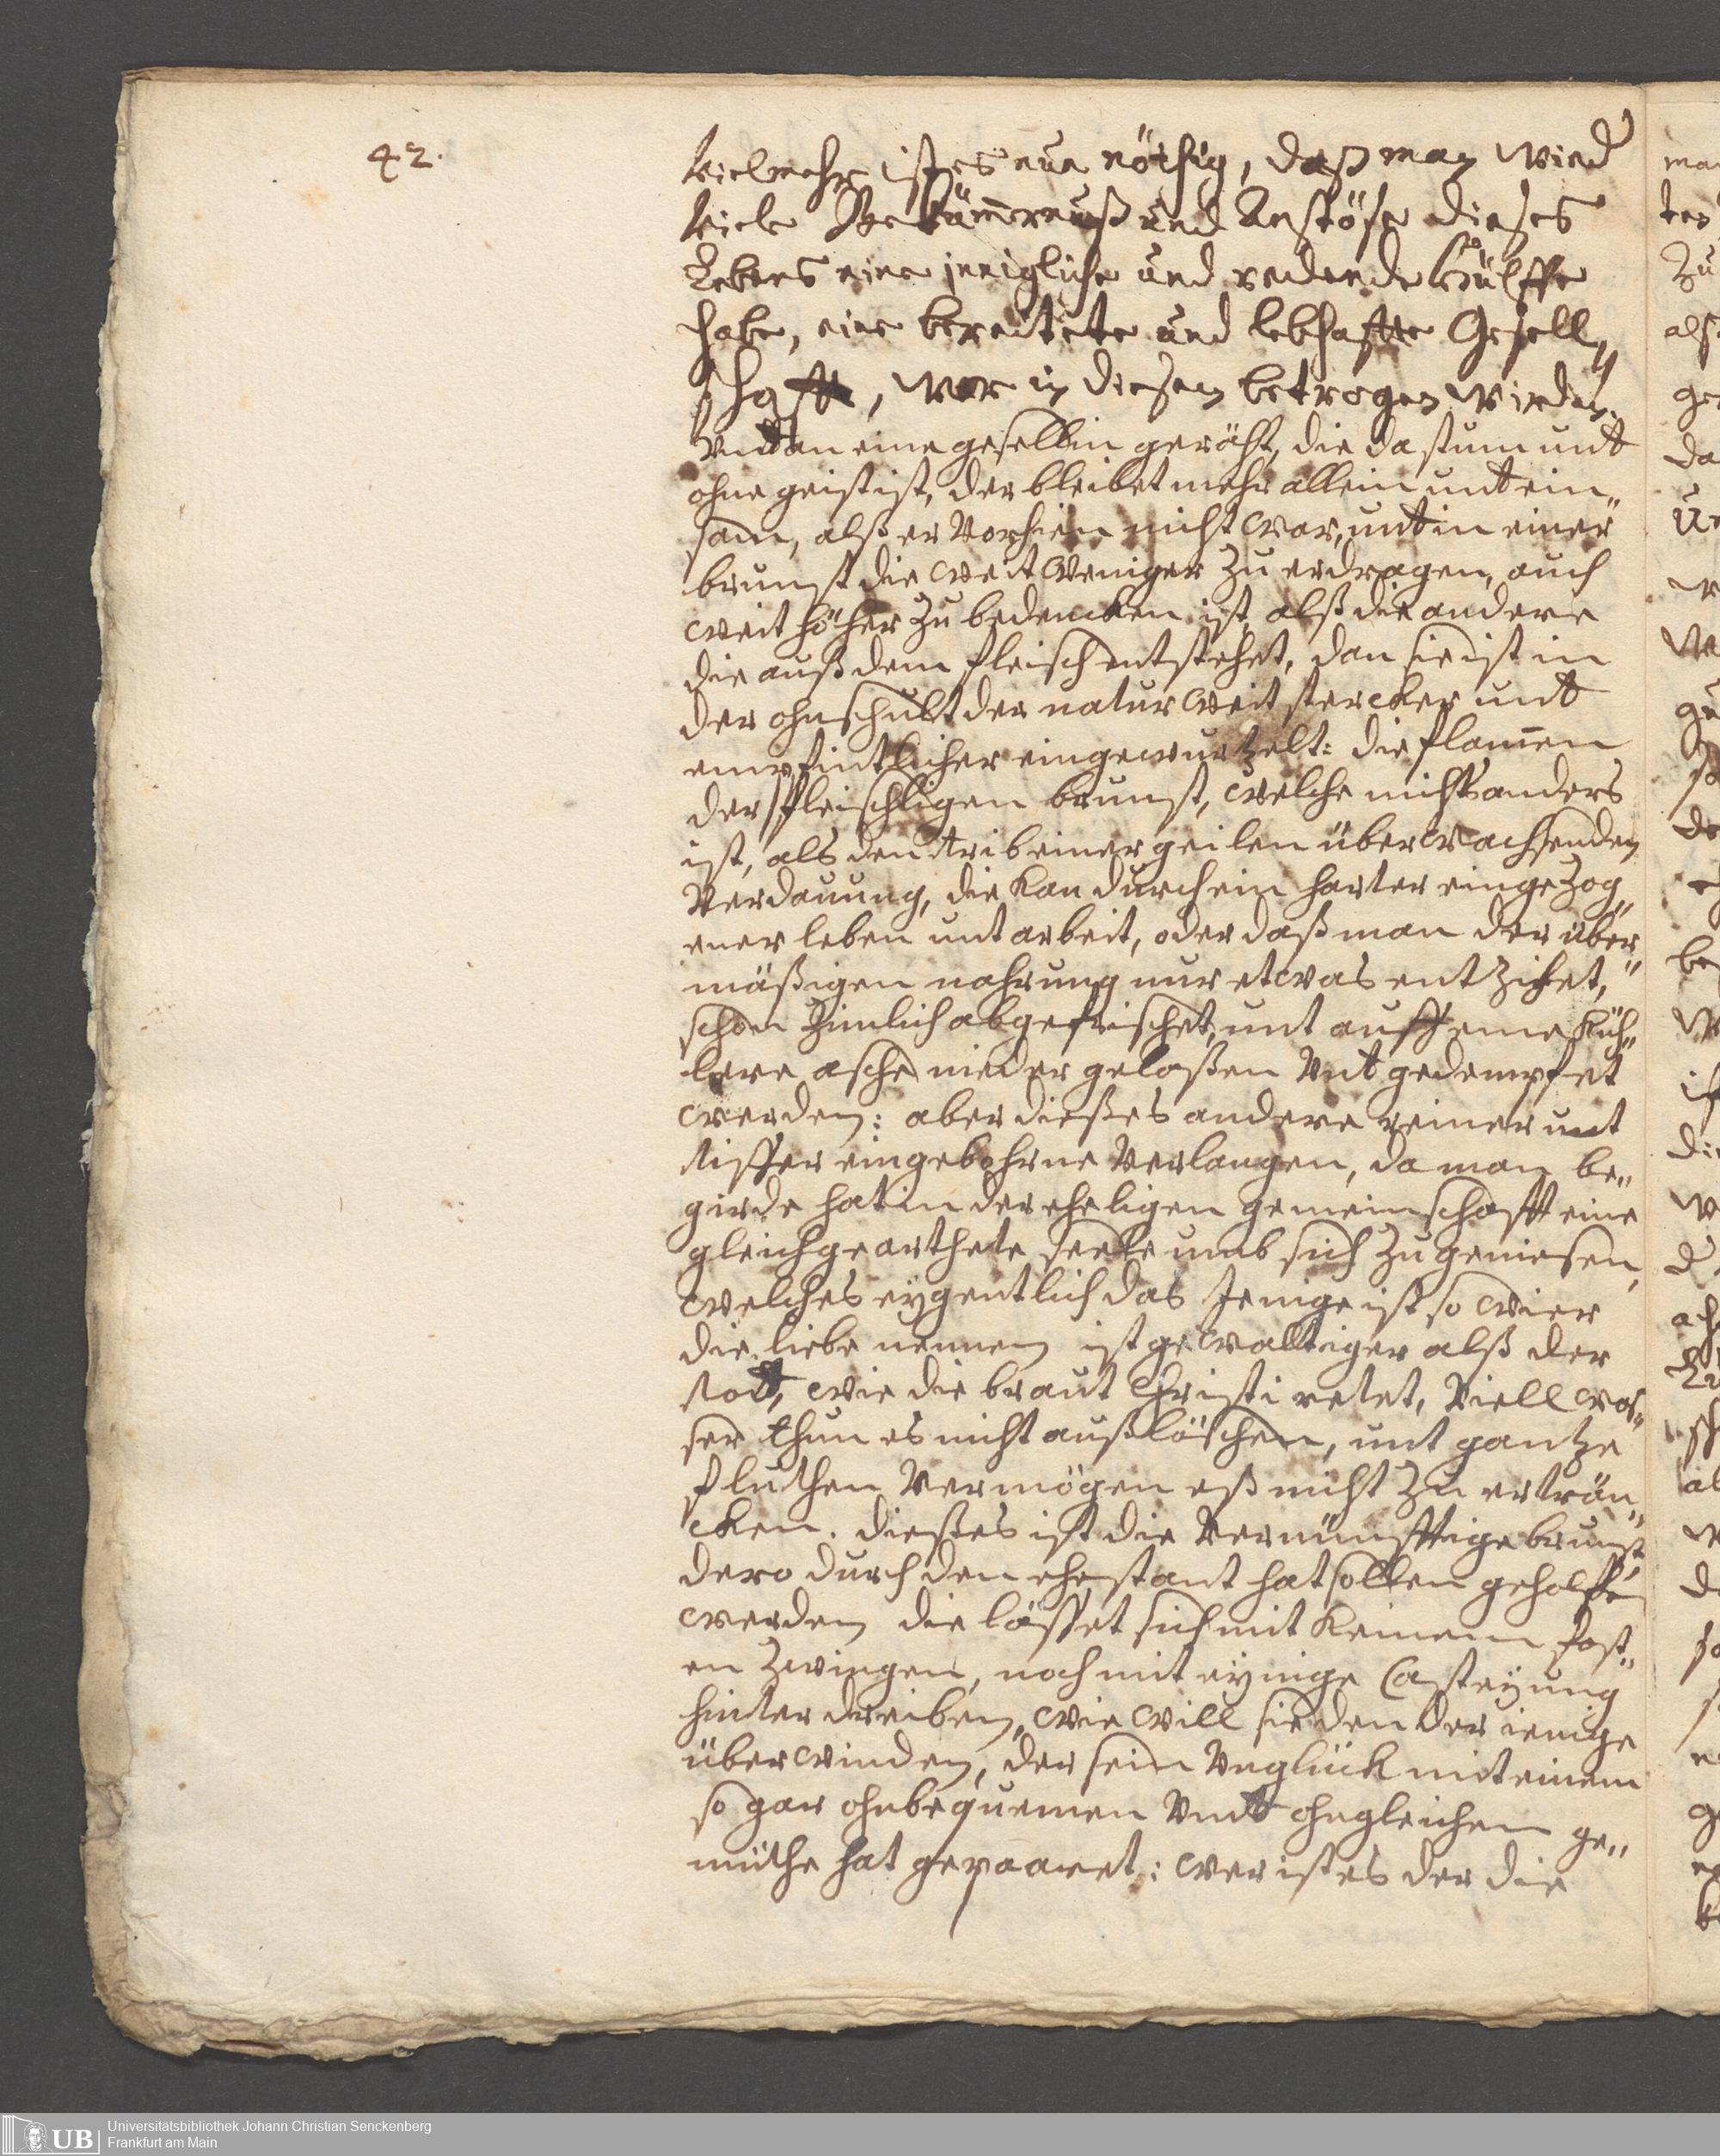 42.
Vielmehr ist es nun nöthig, daß man wied
viele Bekümmernuß und Anstöse dieses
Lebens eine innigliche und redende Hülffe
habe, eine bereitete und lebhaffte Gesell„
schafft, wer in diesem betrogen wirdt
Undt an eine gesellin geräht, die da stum undt
ohne geist ist, der bleibet mehr allein undt ein„
sam, alß er Vorhien nicht war, undt in einer
brunst die weit weniger zu erdragen, auch
weit höher zu bedencken ist, alß die andere
die auß dem fleisch entstehet, dan sie ist in
der ohnschult der natur weit stercker undt
empfintlicher eingewurtzelt: die flam̄en
der fleischligen brunst, welche nichts anders
ist, als den trib einer geilen überwachsenden
Verdauung, die kan durch ein harter eingezog„
ener leben unt arbeit, oder daß man der über„
mäßigen nahrung nur etwas entzihet,
schon zimlich abgefrischet, unt auff eine küh„
lere asche nieder gelaßen Unt gedempfet
werden: aber dießes andere reiner unt
tiffer eingebohrne Verlangen, da man be„
girde hat in der eheligen gemeinschafft eine
gleichgearthete seele umb sich zu geniesen,
welches eÿgentlich das Jenige ist so wier
die liebe nennen ist gewaltiger alß der
todt, wie die braut Christi retet, Viell was„
ser thun es nicht außlöschen, unt gantze
fluthen Vermögen eß nicht zu erträn„
cken. dießes ist die Vernünfftige brunst,
dero durch den ehestant hat sollen geholffen
werden die läßet sich mit keinem fast„
en zwingen, noch mit eÿnige Casteÿung
hinterdreiben, wie will sie den der ienige
überwinden, der sein Unglück mit einem
so gar ohnbequemen Undt ohngleichen ge„
müthe hat gepaaret: wer ist es der die
Universitätsbibliothek Johann Christian Senckenberg
Frankfurt am Main
UB